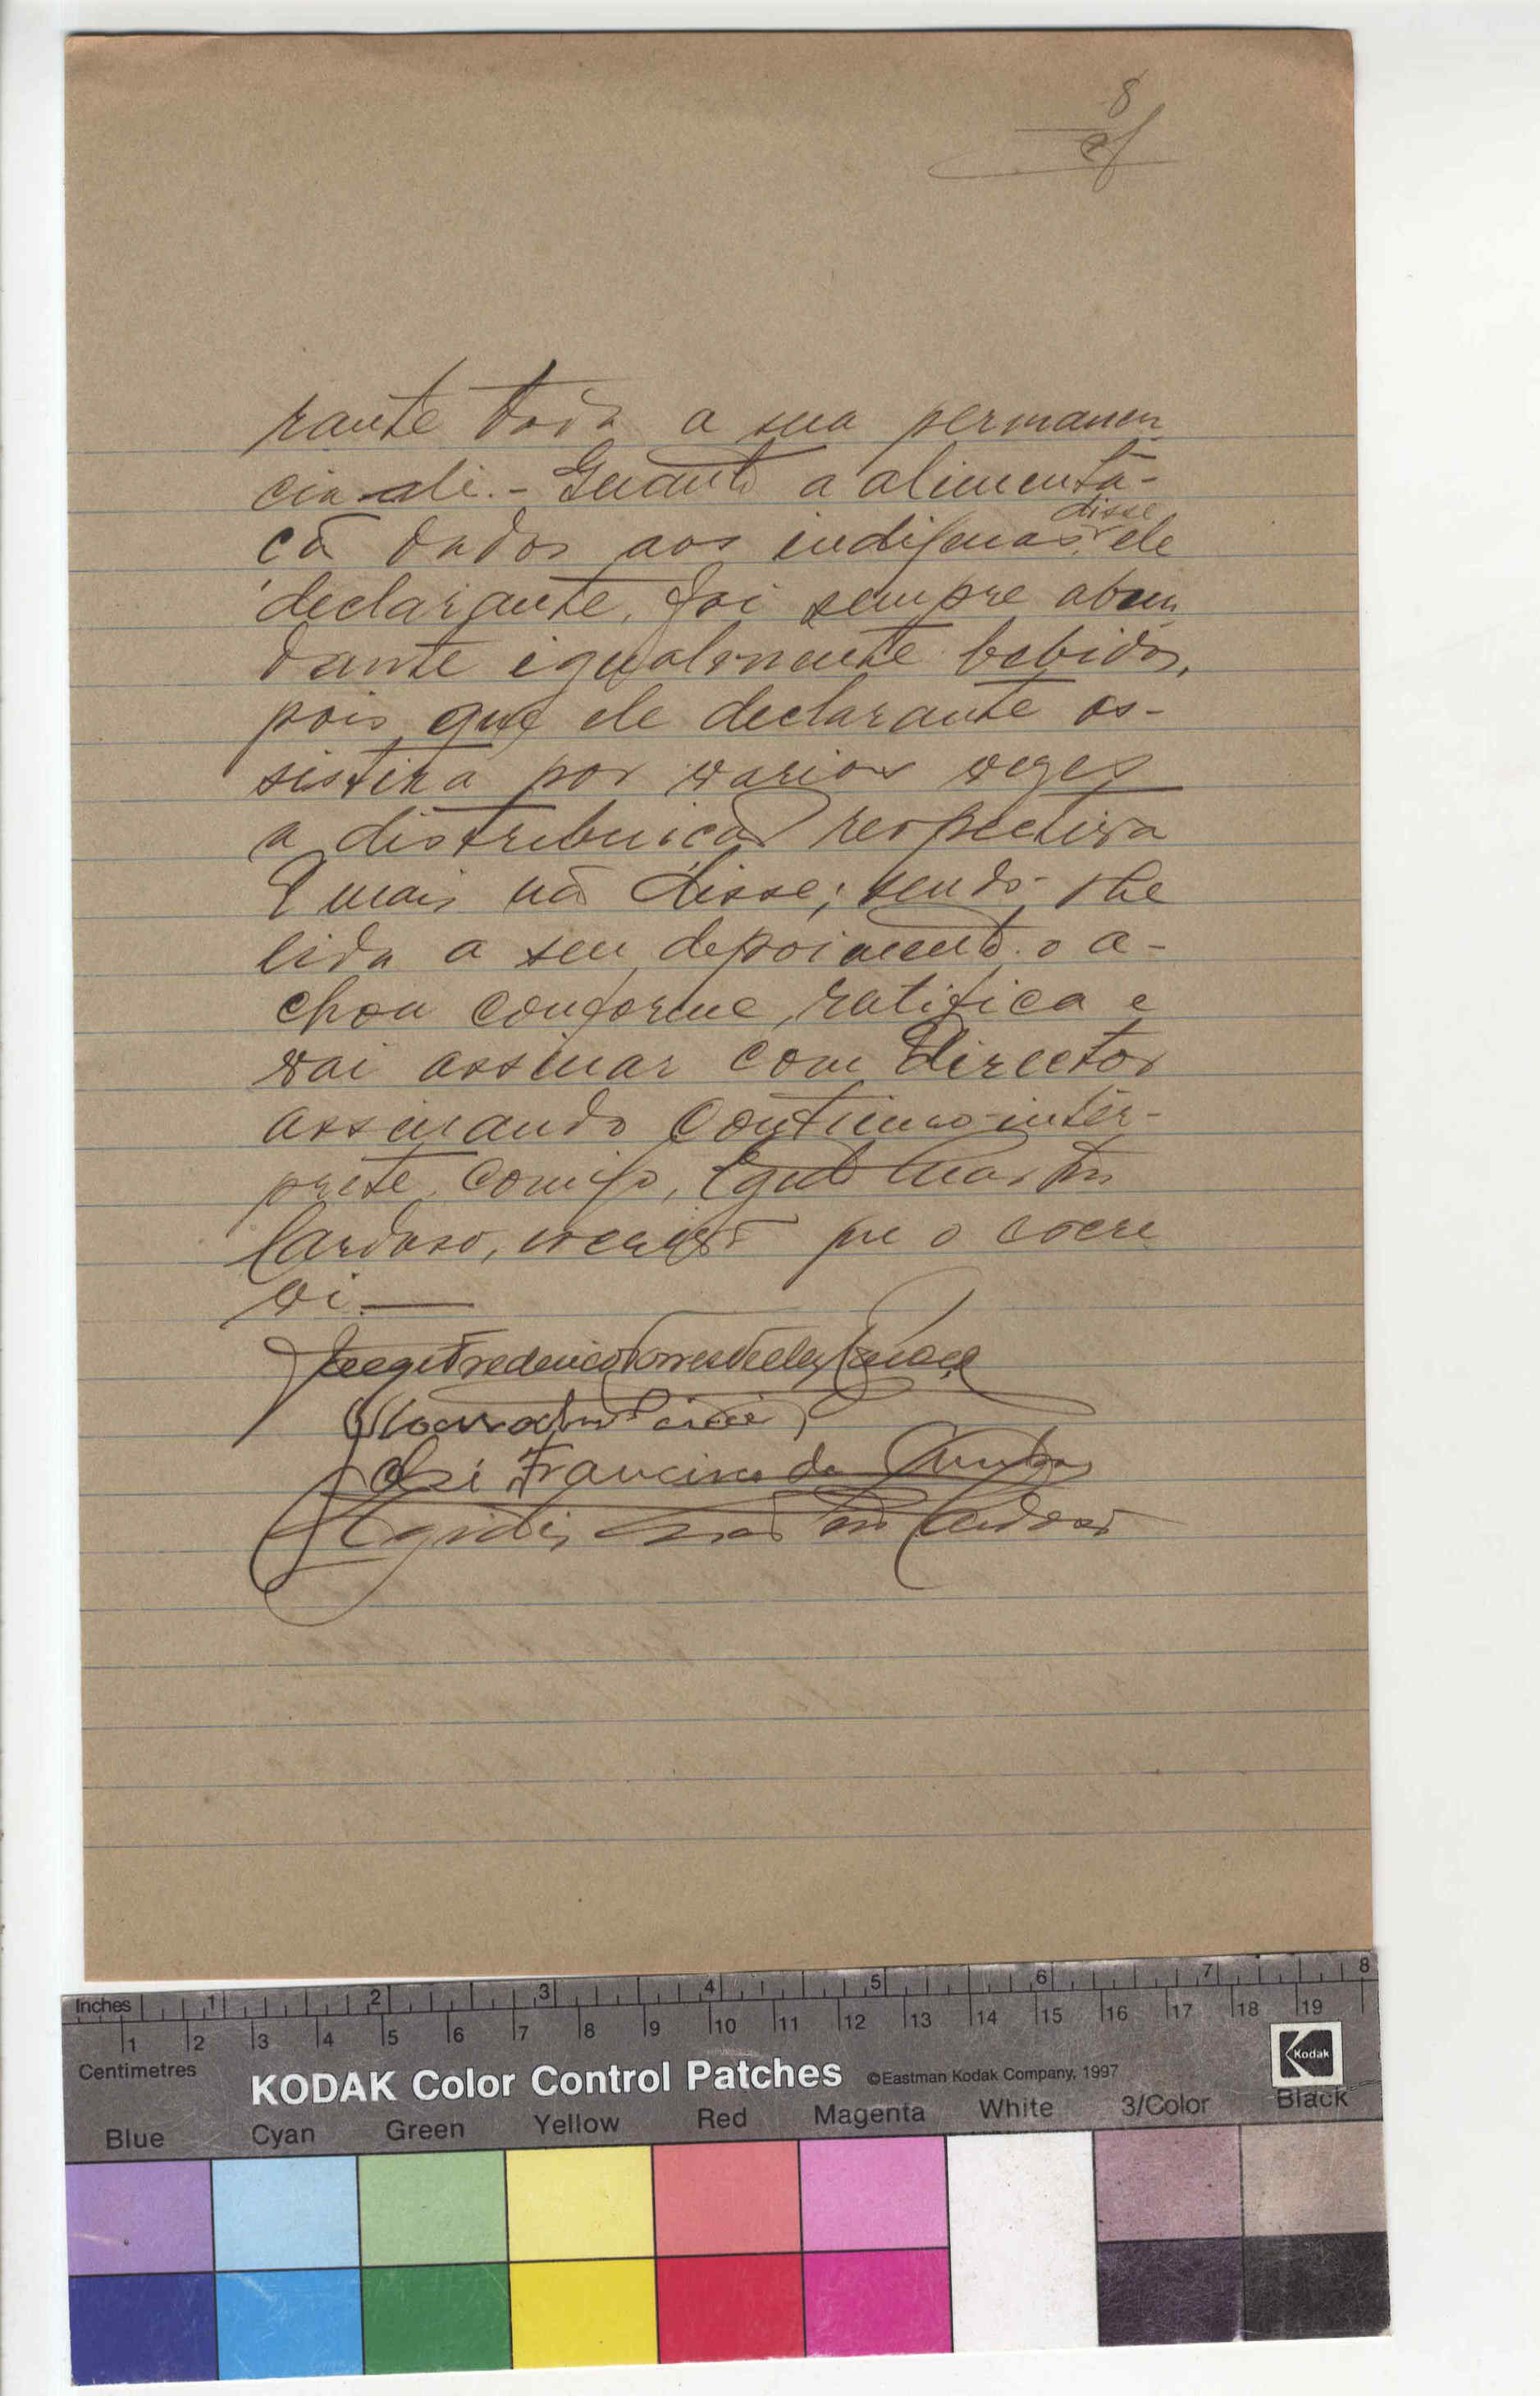 8
rante toda a sua permanen
cia ali. - Quanto a alimenta-
cã dados aos indigenas, disse ele
declarante, foi sempre abun
dante igualmente bebidas,
pois que ele declarante as-
sistira por varias vezes
a distribuicão respectiva
E mais nã disse; sendo-lhe
lida a seu depoimento o a-
chou conforme, ratifica e
vai assinar com Director
assinando continuo-inter-
prete comigo, Egidio Martins
Cardoso, que o escre
vi.
Frederico Torres
José Francisco da Cunha
Egidio Martins Cardoso
Inches 1 2 3 4 5 6 7 8
1 2 3 4 5 6 7 8 9 10 11 12 13 14 15 16 17 18 19
Centimetres
KODAK Color Control Patches ©Eastman Kodak Company, 1997 Kodak
Blue Cyan Green Yellow Red Magenta White 3/Color Black